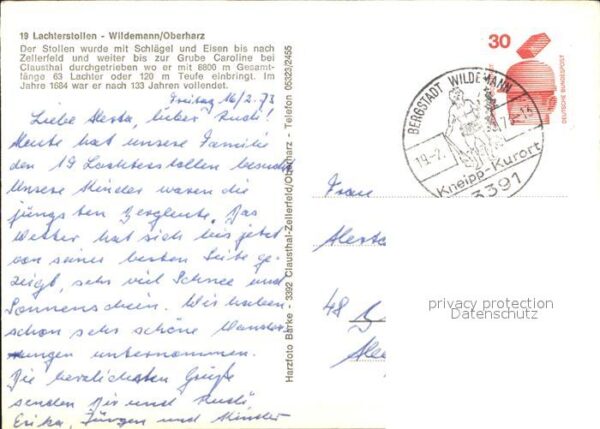 19 Lachterstollen - Wildemann/Oberharz
Der Stollen wurde mit Schlägel und Eisen bis nach
Zellerfeld und weiter bis zur Grube Caroline bei
Clausthal durchgetrieben wo er mit 8800 m Gesamt-
länge 63 Lachter oder 120 m Teufe einbringt. Im
Jahre 1684 war er nach 133 Jahren vollendet.
Freitag 16/2.73
Liebe Alesta, lieber Rudi!
Heute hat unsere Familie
den 19 Lachterstollen besucht
Unsere Kinder waren die
jüngsten Bergleute. Das
Wetter hat sich bis jetzt
von seiner besten Seite ge-
zeigt, sehr viel Schnee und
Sonnenschein. Wir haben
schon sehr schöne Wander
ungen unternommen.
Die herzlichsten Grüße
senden Dir und Rudi
Erika, Jürgen und Kinder
Harzfoto Barke - 3392 Clausthal-Zellerfeld/Oberharz - Telefon 05323/2455
30
DEUTSCHE BUNDESPOST
BERGSTADT WILDEMANN
19.-2.
Kneipp-Kurort
3391
Frau
Alesta
48
privacy protection
Datenschutz